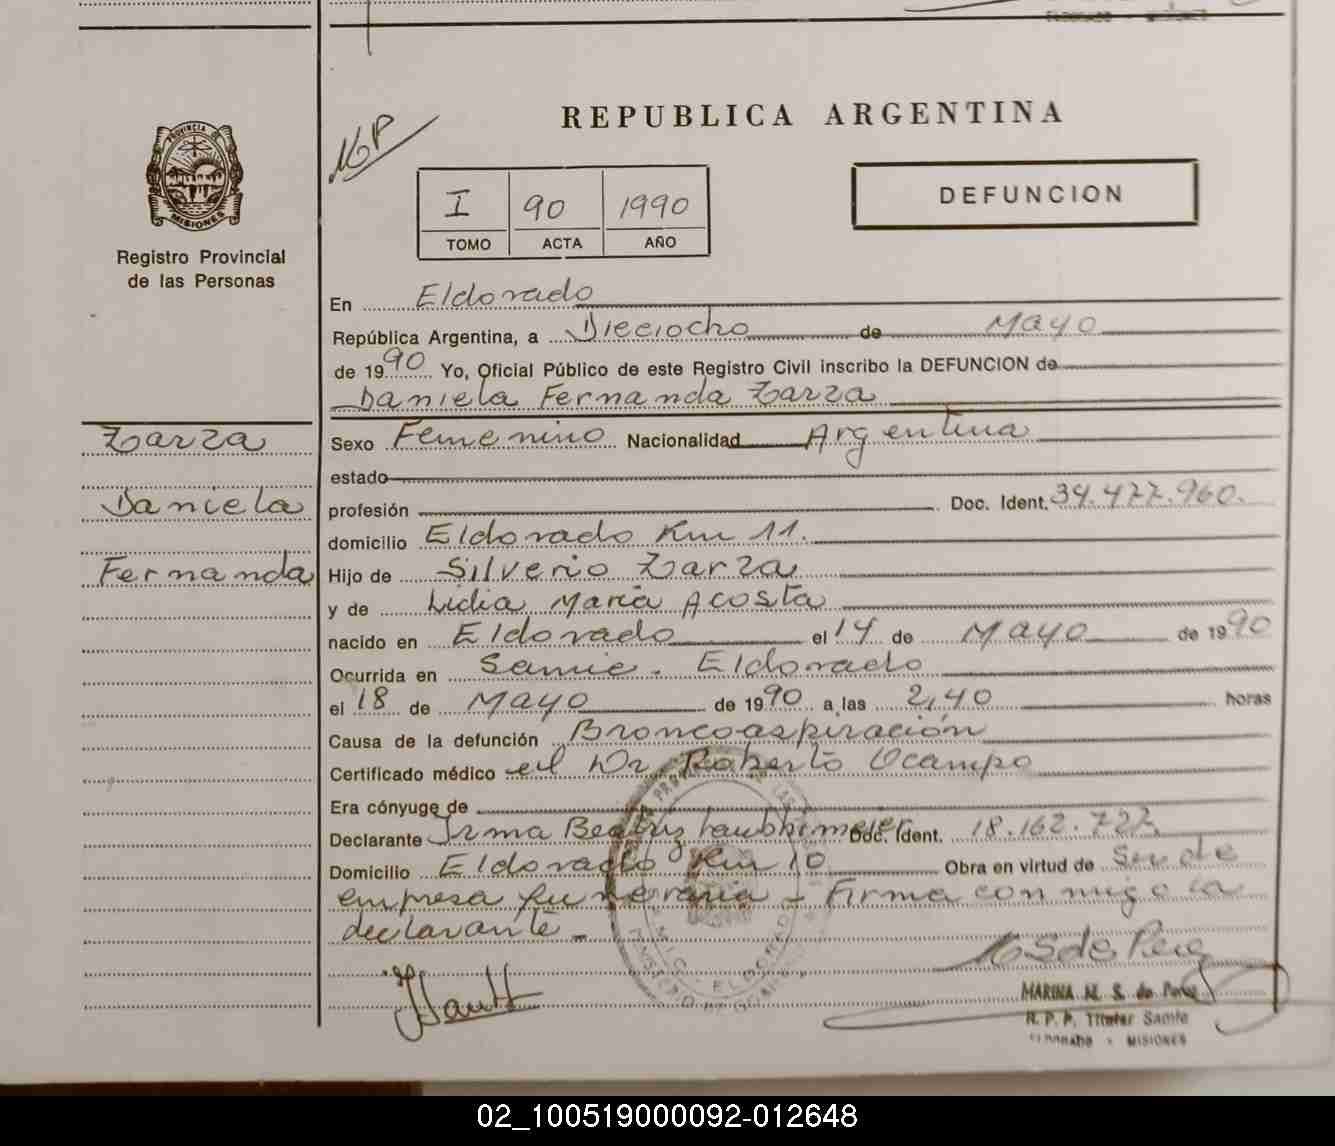 REPUBLICA ARGENTINA
PROVINCIA DE
MISIONES
Registro Provincial
de las Personas
I 90 1990
TOMO ACTA AÑO
DEFUNCION
En Eldorado
República Argentina, a Dieciocho de Mayo
de 1990 Yo, Oficial Público de este Registro Civil inscribo la DEFUNCION de
Daniela Fernanda Zarza
Zarza
Daniela
Fernanda
Sexo Femenino Nacionalidad Argentina
estado
profesión Doc. Ident. 34.477.960.
domicilio Eldorado Km 11.
Hijo de Silverio Zarza
y de Lidia María Acosta
nacido en Eldorado el 14 de Mayo de 1990
Ocurrida en Samic. Eldorado
el 18 de Mayo de 1990 a las 2,40 horas
Causa de la defunción Broncoaspiración
Certificado médico el Dr. Roberto Ocampo
Era cónyuge de
Declarante Irma Beatriz Doc. Ident. 18.162.727
Domicilio Eldorado Km 10 Obra en virtud de Ser de
empresa funeraria - Firma conmigo la
declarante -
MSdePerez
MARINA M. S. de Perez
R. P. P. Titular Samic
ELDORADO - MISIONES
02_100519000092-012648